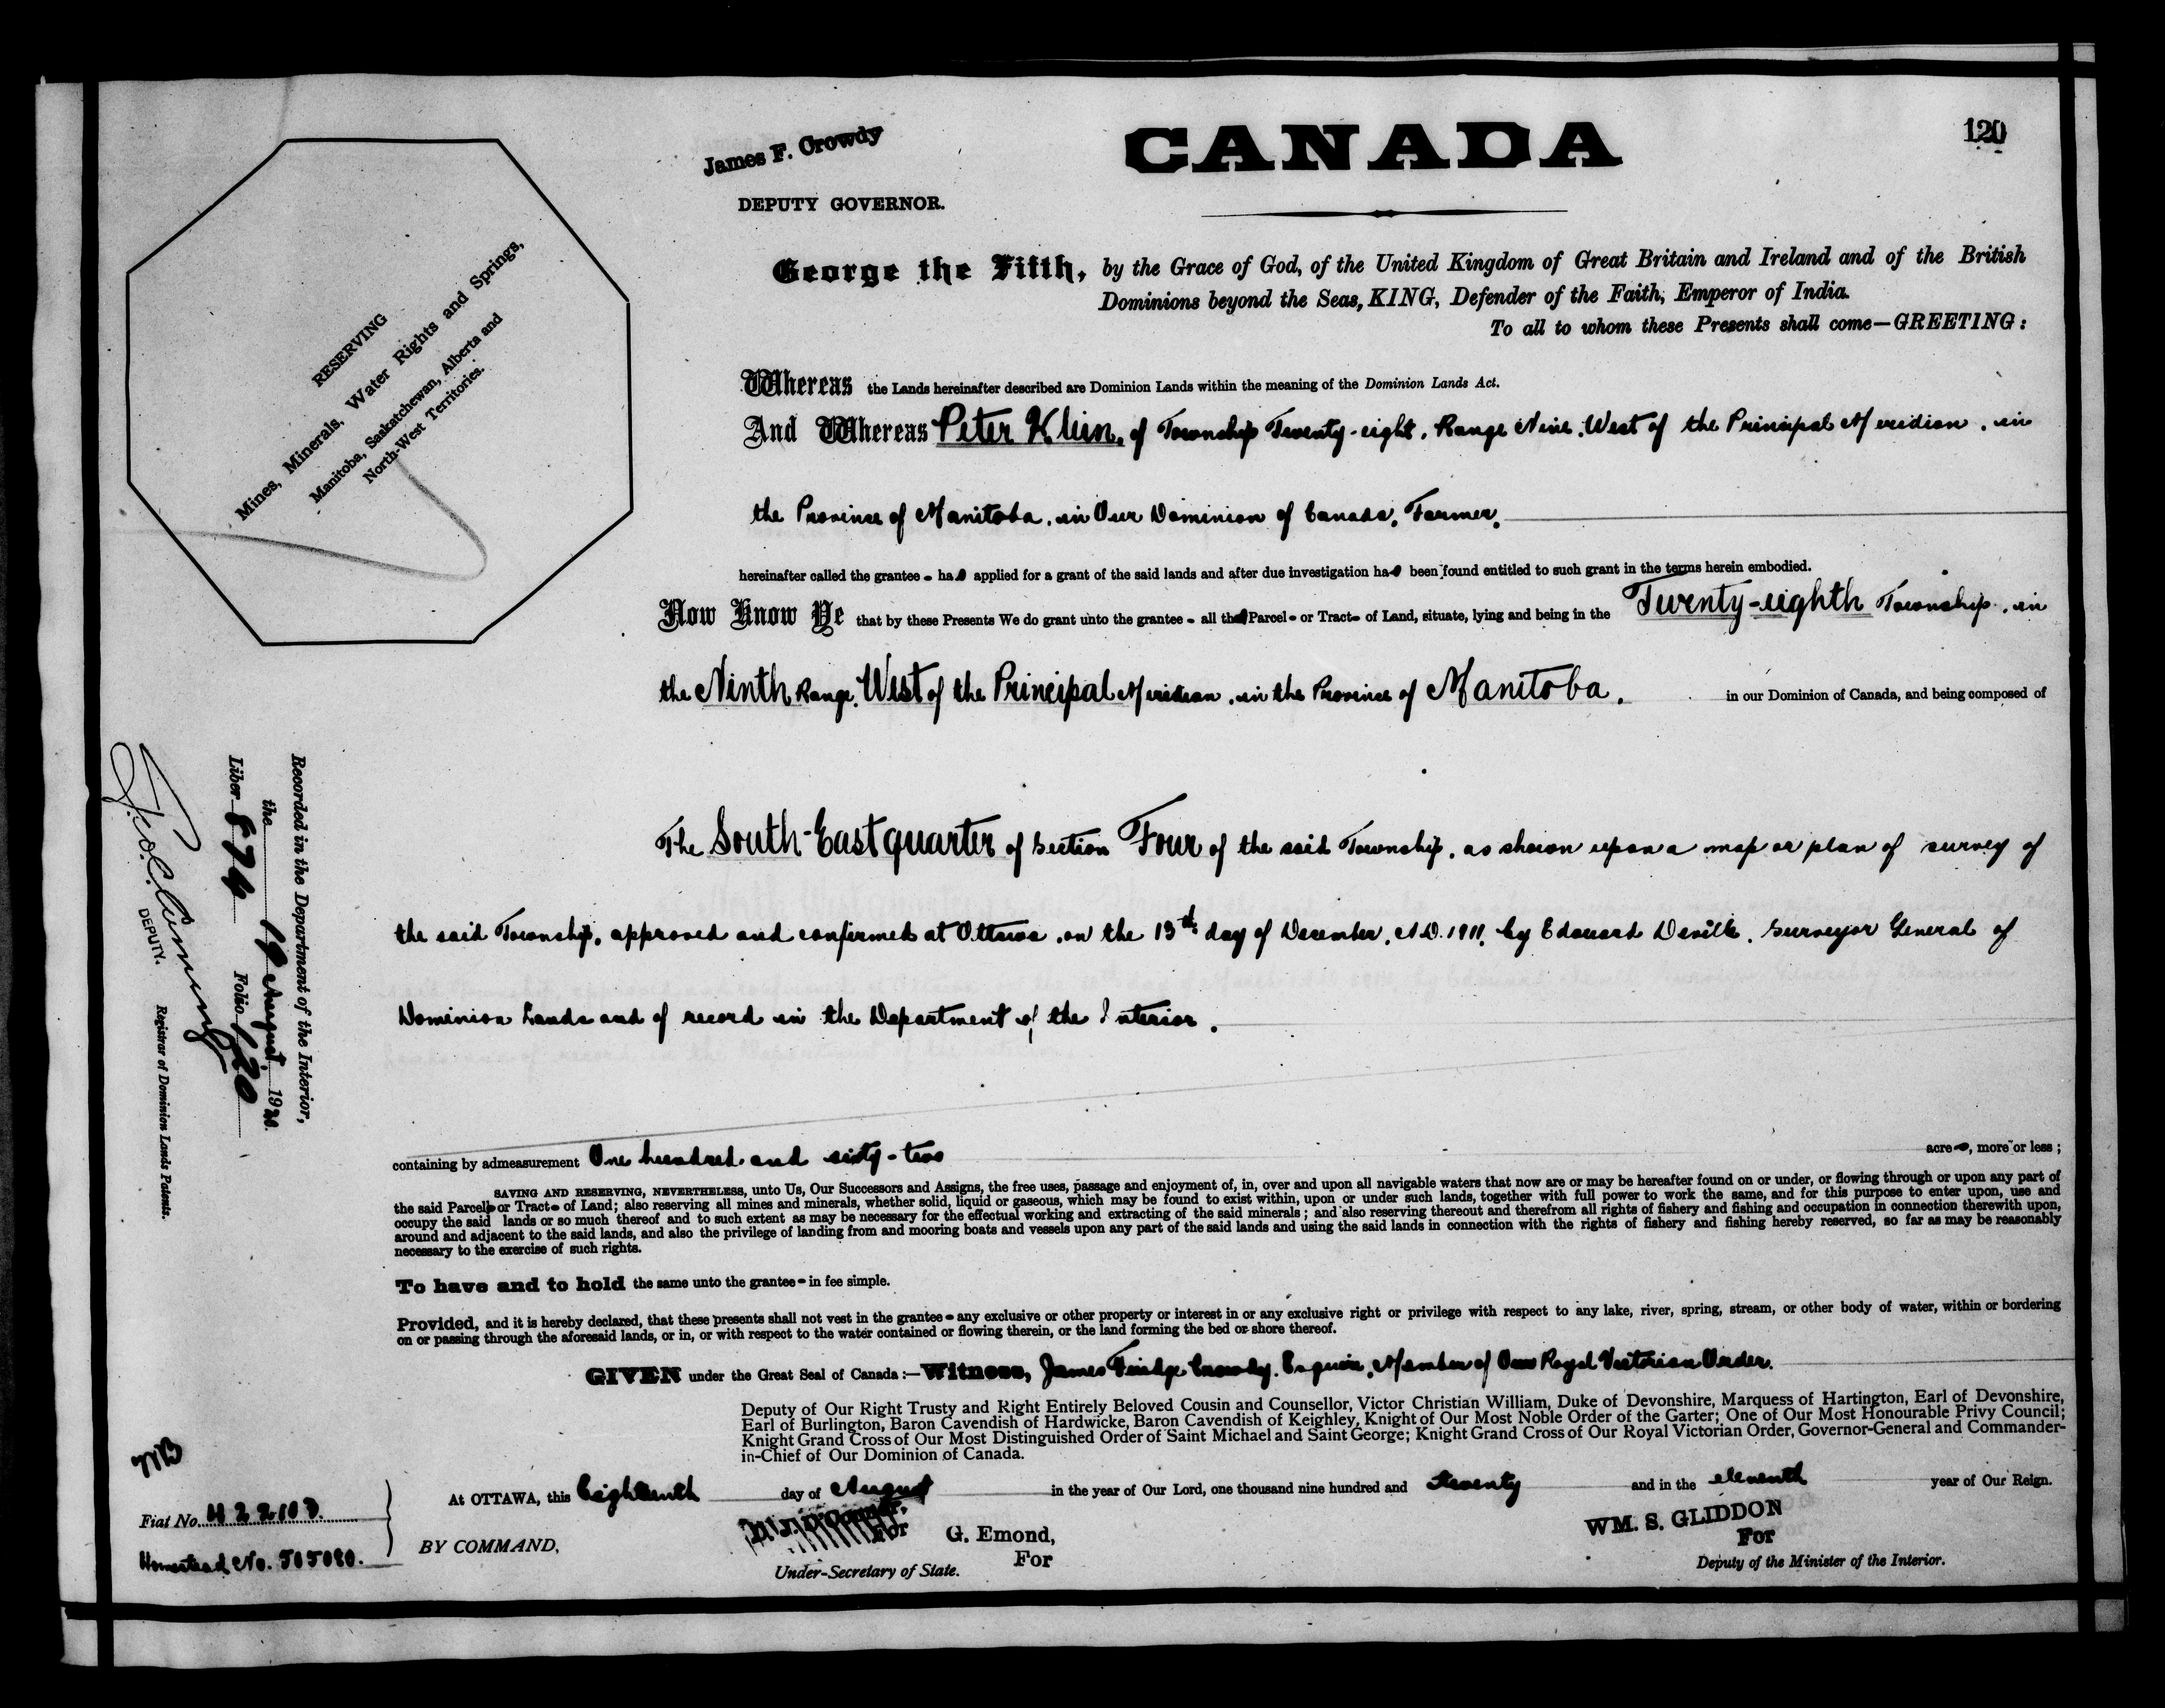 CANADA
120
James F. Crowdy
DEPUTY GOVERNOR.
RESERVING
Mines, Minerals, Water Rights and Springs,
Manitoba, Saskatchewan, Alberta and
North-West Territories.
George the Fifth, by the Grace of God, of the United Kingdom of Great Britain and Ireland and of the British
Dominions beyond the Seas, KING, Defender of the Faith, Emperor of India.
To all to whom these Presents shall come—GREETING:
Whereas the Lands hereinafter described are Dominion Lands within the meaning of the Dominion Lands Act.
And Whereas Peter Klein, of Township Twenty-eight, Range Nine, West of the Principal Meridian, in
the Province of Manitoba, in Our Dominion of Canada, Farmer,
hereinafter called the grantee - has applied for a grant of the said lands and after due investigation has been found entitled to such grant in the terms herein embodied.
Now Know Ye that by these Presents We do grant unto the grantee - all that Parcel - or Tract - of Land, situate, lying and being in the Twenty-eighth Township, in
the Ninth Range, West of the Principal Meridian, in the Province of Manitoba, in our Dominion of Canada, and being composed of
The South-East quarter of Section Four of the said Township, as shown upon a map or plan of survey of
the said Township, approved and confirmed at Ottawa, on the 13th day of December, A.D. 1911, by Edouard Deville, Surveyor General of
Dominion Lands and of record in the Department of the Interior.
containing by admeasurement One hundred and sixty-two acres, more or less;
SAVING AND RESERVING, NEVERTHELESS, unto Us, Our Successors and Assigns, the free uses, passage and enjoyment of, in, over and upon all navigable waters that now are or may be hereafter found on or under, or flowing through or upon any part of
the said Parcel or Tract - of Land; also reserving all mines and minerals, whether solid, liquid or gaseous, which may be found to exist within, upon or under such lands, together with full power to work the same, and for this purpose to enter upon, use and
occupy the said lands or so much thereof and to such extent as may be necessary for the effectual working and extracting of the said minerals; and also reserving thereout and therefrom all rights of fishery and fishing and occupation in connection therewith upon,
around and adjacent to the said lands, and also the privilege of landing from and mooring boats and vessels upon any part of the said lands and using the said lands in connection with the rights of fishery and fishing hereby reserved, so far as may be reasonably
necessary to the exercise of such rights.
To have and to hold the same unto the grantee - in fee simple.
Provided, and it is hereby declared, that these presents shall not vest in the grantee - any exclusive or other property or interest in or any exclusive right or privilege with respect to any lake, river, spring, stream, or other body of water, within or bordering
on or passing through the aforesaid lands, or in, or with respect to the water contained or flowing therein, or the land forming the bed or shore thereof.
GIVEN under the Great Seal of Canada:—Witness, James Crowdy, Esquire, Member of Our Royal Victorian Order.
Deputy of Our Right Trusty and Right Entirely Beloved Cousin and Counsellor, Victor Christian William, Duke of Devonshire, Marquess of Hartington, Earl of Devonshire,
Earl of Burlington, Baron Cavendish of Hardwicke, Baron Cavendish of Keighley, Knight of Our Most Noble Order of the Garter; One of Our Most Honourable Privy Council;
Knight Grand Cross of Our Most Distinguished Order of Saint Michael and Saint George; Knight Grand Cross of Our Royal Victorian Order, Governor-General and Commander-
in-Chief of Our Dominion of Canada.
At OTTAWA, this Eighteenth day of August in the year of Our Lord, one thousand nine hundred and twenty and in the eleventh year of Our Reign.
BY COMMAND,
For
G. Emond,
For
Under-Secretary of State.
WM. S. GLIDDON
For
Deputy of the Minister of the Interior.
Recorded in the Department of the Interior,
the 19 August 1920.
Liber 874 Folio 120
DEPUTY.
Registrar of Dominion Lands Patents.
MB
Fiat No. 422103.
Homestead No. 505080.